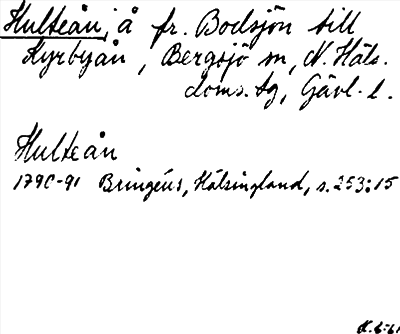 Hulteån, å fr. Bodsjön till
Kyrbyån, Bergsjö sn, N. Häls.
doms. tg, Gävl. l.
Hulteån
1790-91 Bringéus, Hälsingland, s. 253:15